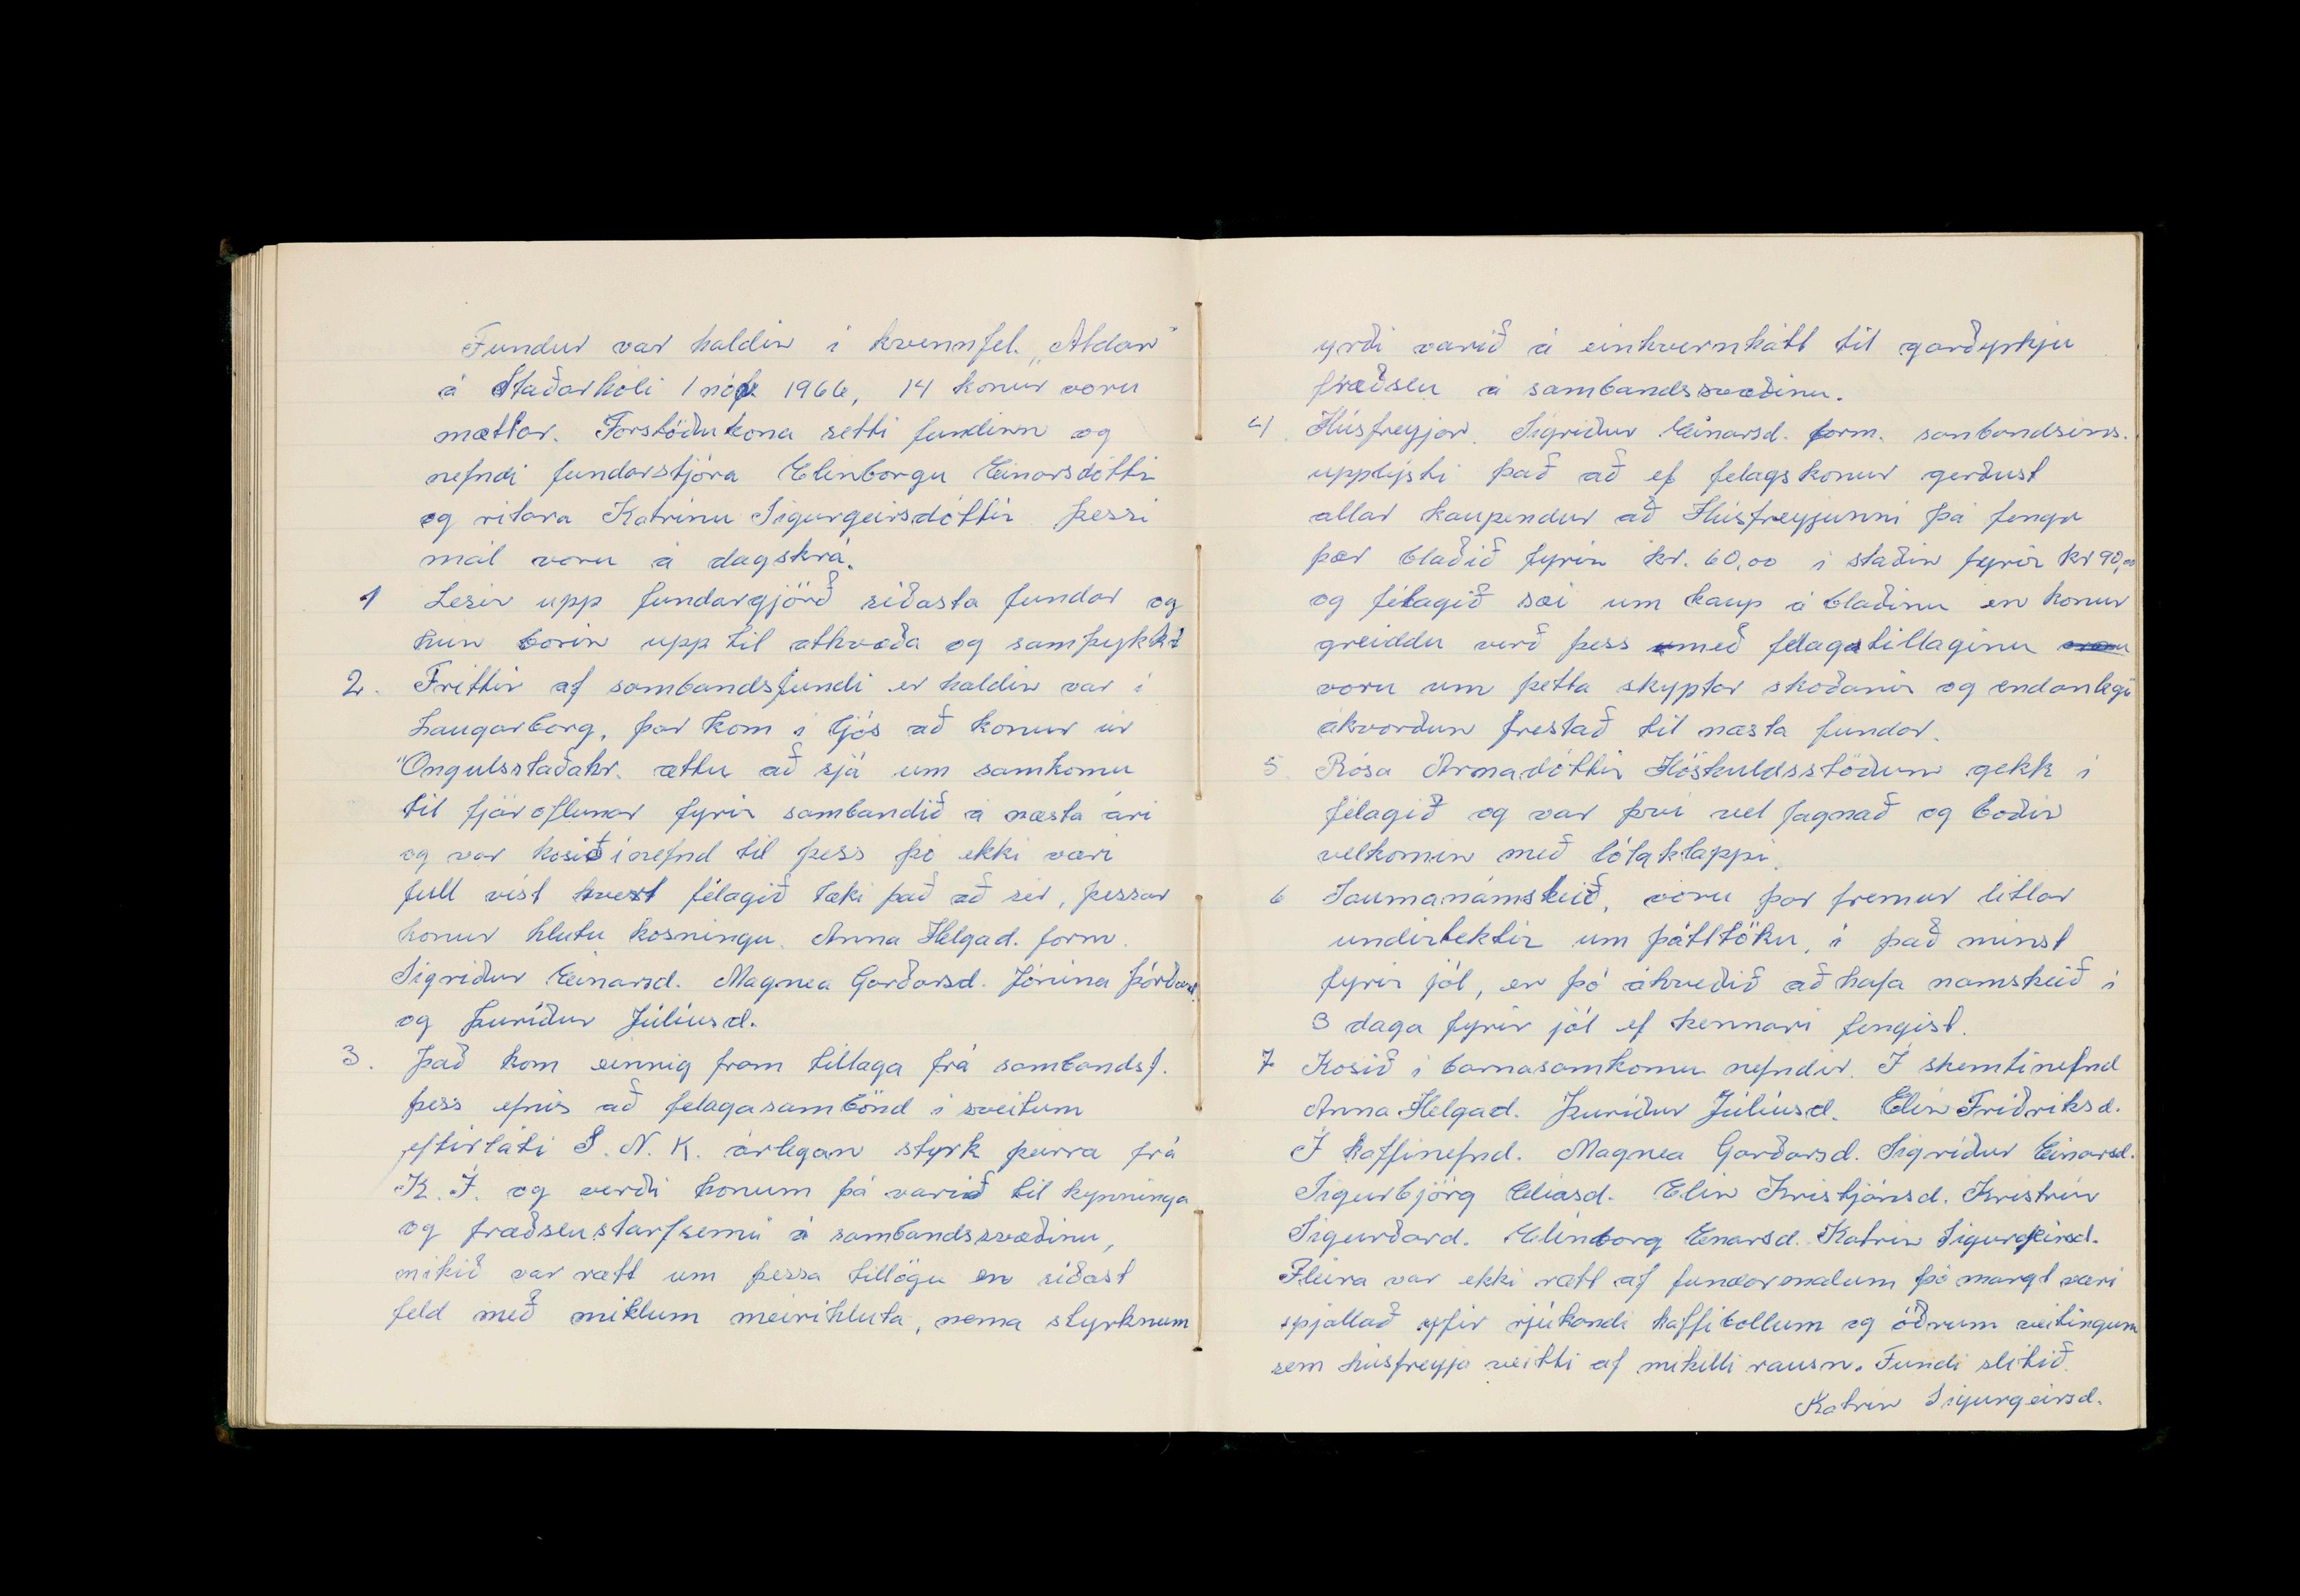 Fundur var haldin í kvennfel. „Aldan"
á Staðarhóli 1 nóv. 1966, 14 konur voru
mættar. Forstöðukona setti fundinn og
nefndi fundarstjóra Elinborgu Einarsdóttir
og ritara Katrínu Sigurgeirsdóttir þessi
mál voru á dagskrá.
1 Lesin upp fundargjörð síðasta fundar og
hún borin upp til athvæða og samþykkt
2. Fréttir af sambandsfundi er haldin var í
Laugarborg, þar kom í ljós að konur úr
Öngulsstaðahr. ættu að sjá um samkomu
til fjáröflunar fyrir sambandið á næsta ári
og var kosið í nefnd til þess þó ekki væri
full víst hvert félagið tæki það að sér, þessar
konur hlutu kosningu. Anna Helgad. form.
Sigríður Einarsd. Magnea Garðarsd. Jónína Þórðard.
og Þuríður Júlíusd.
3. Það kom einnig fram tillaga frá sambandsf.
þess efnis að félagasambönd í sveitum
eftirláti S. N. K. árlegan styrk þeirra frá
K. Í. og verði honum þá varið til kynninga
og fræðslustarfsemi á sambandssvæðinu,
mikið var rætt um þessa tillögu en síðast
feld með miklum meirihluta, nema styrknum
yrði varið á einhvernhátt til garðyrkju
fræðslu á sambandssvæðinu.
4. Húsfreyjan. Sigríður Einarsd. form. sambandsins.
upplýsti það að ef felagskonur gerðust
allar kaupendur að Húsfreyjunni þá fengu
þær blaðið fyrir kr. 60,00 í staðin fyrir kr 90,00
og félagið sæi um kaup á blaðinu en konur
greiddu verð þess með félagstillaginu
voru um þetta skyptar skoðanir og endanlegri
ákvorðun frestað til næsta fundar.
5. Rósa Árnadóttir Höskuldsstöðum gekk í
félagið og var því vel fagnað og boðin
velkomin með lófaklappi.
6 Saumanámskeið, voru þar fremur litlar
undirtektir um þátttöku, í það minst
fyrir jól, en þó ákveðið að hafa namskeið í
3 daga fyrir jól ef kennari fengist.
7 Kosið í barnasamkomu nefndir. Í skemtinefnd
Anna Helgad. Þuríður Júlíusd. Elin Friðriksd.
Í kaffinefnd. Magnea Garðarsd. Sigríður Einarsd.
Sigurbjörg Elíasd. Elin Kristjánsd. Kristrún
Sigurðard. Elinborg Einarsd. Katrin Sigurgeirsd.
Fleira var ekki rætt af fundarmalum þó margt væri
spjallað yfir rjúkandi kaffibollum og öðrum veitingum
sem húsfreyja veitti af mikilli rausn. Fundi slitið.
Katrín Sigurgeirsd.